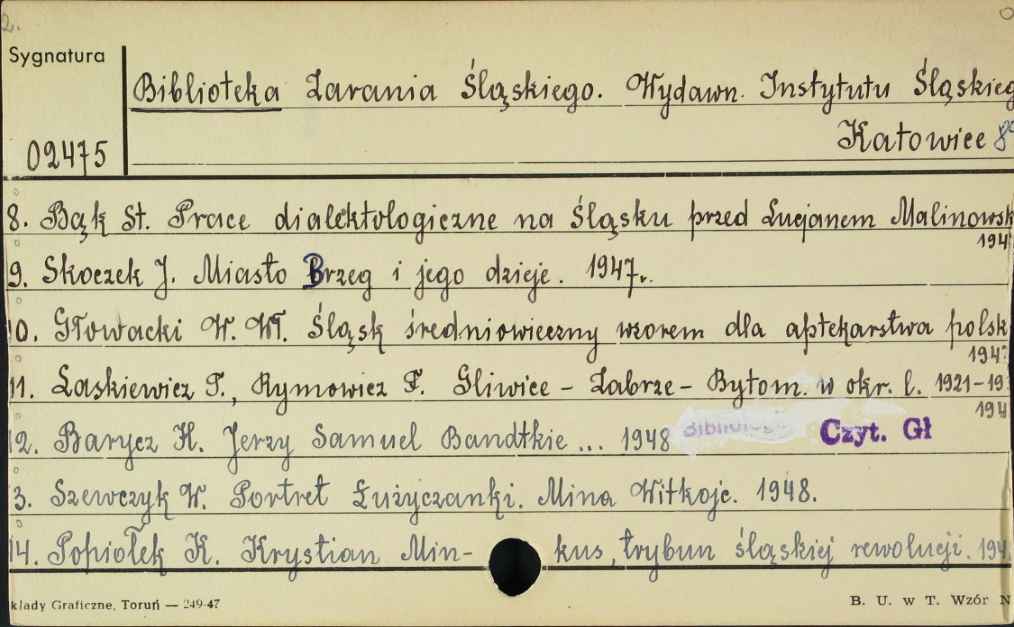 2.
Sygnatura
Biblioteka Zarania Śląskiego. Wydawn. Instytutu Śląskieg
Katowice 8°
02475
8. Bąk St. Prace dialektologiczne na Śląsku przed Lucjanem Malinowsk
194
9. Skoczek J. Miasto Brzeg i jego dzieje. 1947r.
10. Głowacki W. Wł. Śląsk średniowieczny wzorem dla aptekarstwa polsk
194
11. Laskiewicz T., Rymowicz F. Gliwice – Zabrze – Bytom. w okr. l. 1921–19
194
12. Barycz H. Jerzy Samuel Bandtkie ... 1948 Czyt. Gł
3. Szewczyk W. Portret Łużyczanki. Mina Witkojc. 1948.
14. Popiołek K. Krystian Min- kus, trybun śląskiej rewolucji. 194
kłady Graficzne, Toruń — 249-47
B. U. w T. Wzór N